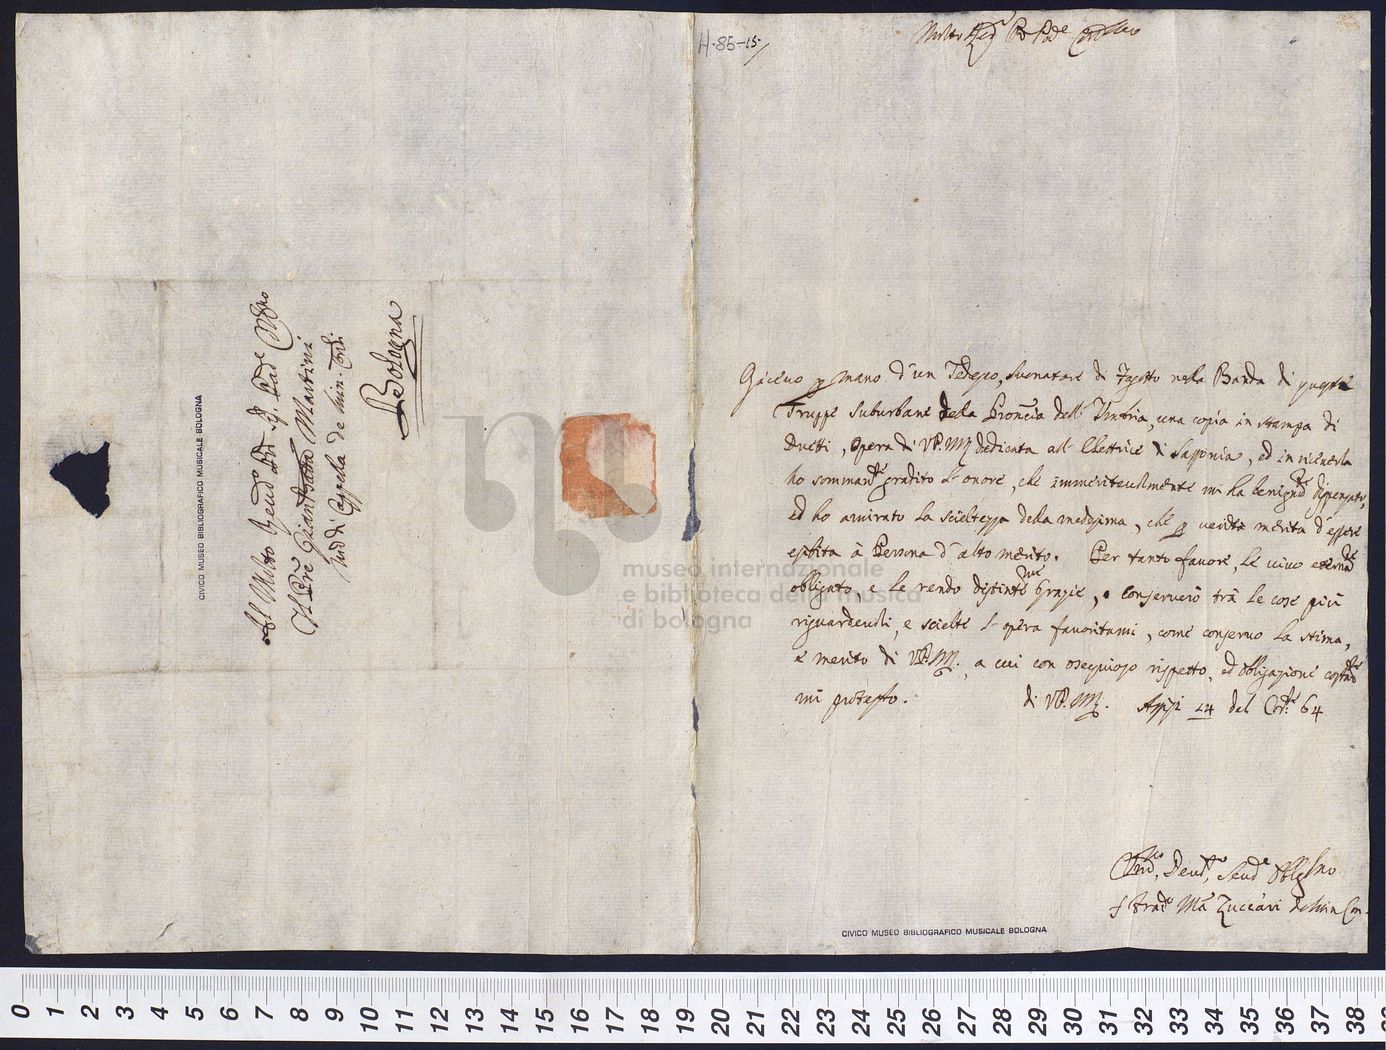 Al Molto Rend.o Pre Sig. Pad.e
Il Pre Giambatta Martini
di Cappella de Min. Con.
Bologna
CIVICO MUSEO BIBLIOGRAFICO MUSICALE BOLOGNA
H-86-15
Molto Pad.e
mano d'un Tedesco, suonatore di Fagotto nella Banda di queste
Truppe suburbane della Provincia dell'Umbria, una copia in stampa di
Duetti, opera di V.P.M. dedicata all'Elettrice di Sassonia, ed in riceverla
ho gradito l'onore, che immeritevolmente mi ha dispensato,
ed ho amirato la scieltezza della medesima, che p verità merita d'essere
esibita à Persona d'alto merito. Per tanto favore, le vivo
obligato, e le rendo distinte Grazie, e conserverò trà le cose più
riguardevoli, e scielte l'opera favoritami, come conservo la stima,
e merito di V.P.M., a cui con ossequioso rispetto, ed obligazione
mi protesto. di V.P.M. Assisi 24 del Cor.e 64
Dev.o, Serv.e
f Fran.o M.a Zuccari de Min Con.
CIVICO MUSEO BIBLIOGRAFICO MUSICALE BOLOGNA
museo internazionale
e biblioteca della musica
di bologna
0 1 2 3 4 5 6 7 8 9 10 11 12 13 14 15 16 17 18 19 20 21 22 23 24 25 26 27 28 29 30 31 32 33 34 35 36 37 38